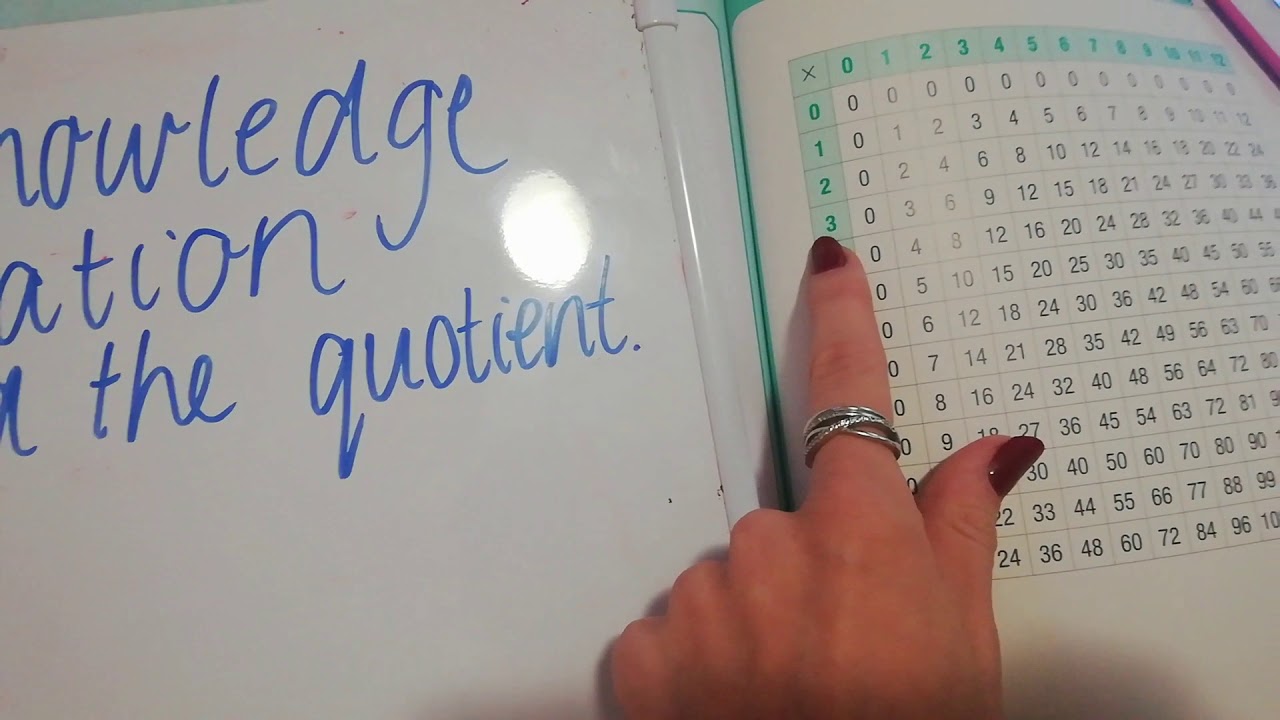 nowledge
ation
the quotient.
× 0 1 2 3 4 5 6 7 8 9 10 11 12
0 0 0 0 0 0 0 0 0 0 0 0 0 0
1 0 1 2 3 4 5 6 7 8 9 10 11 12
2 0 2 4 6 8 10 12 14 16 18 20 22 24
3 0 3 6 9 12 15 18 21 24 27 30 33 36
0 4 8 12 16 20 24 28 32 36 40 44
0 5 10 15 20 25 30 35 40 45 50 55
0 6 12 18 24 30 36 42 48 54 60
0 7 14 21 28 35 42 49 56 63 70
0 8 16 24 32 40 48 56 64 72 80
0 9 18 27 36 45 54 63 72 81
0 30 40 50 60 70 80 90
22 33 44 55 66 77 88 99
24 36 48 60 72 84 96